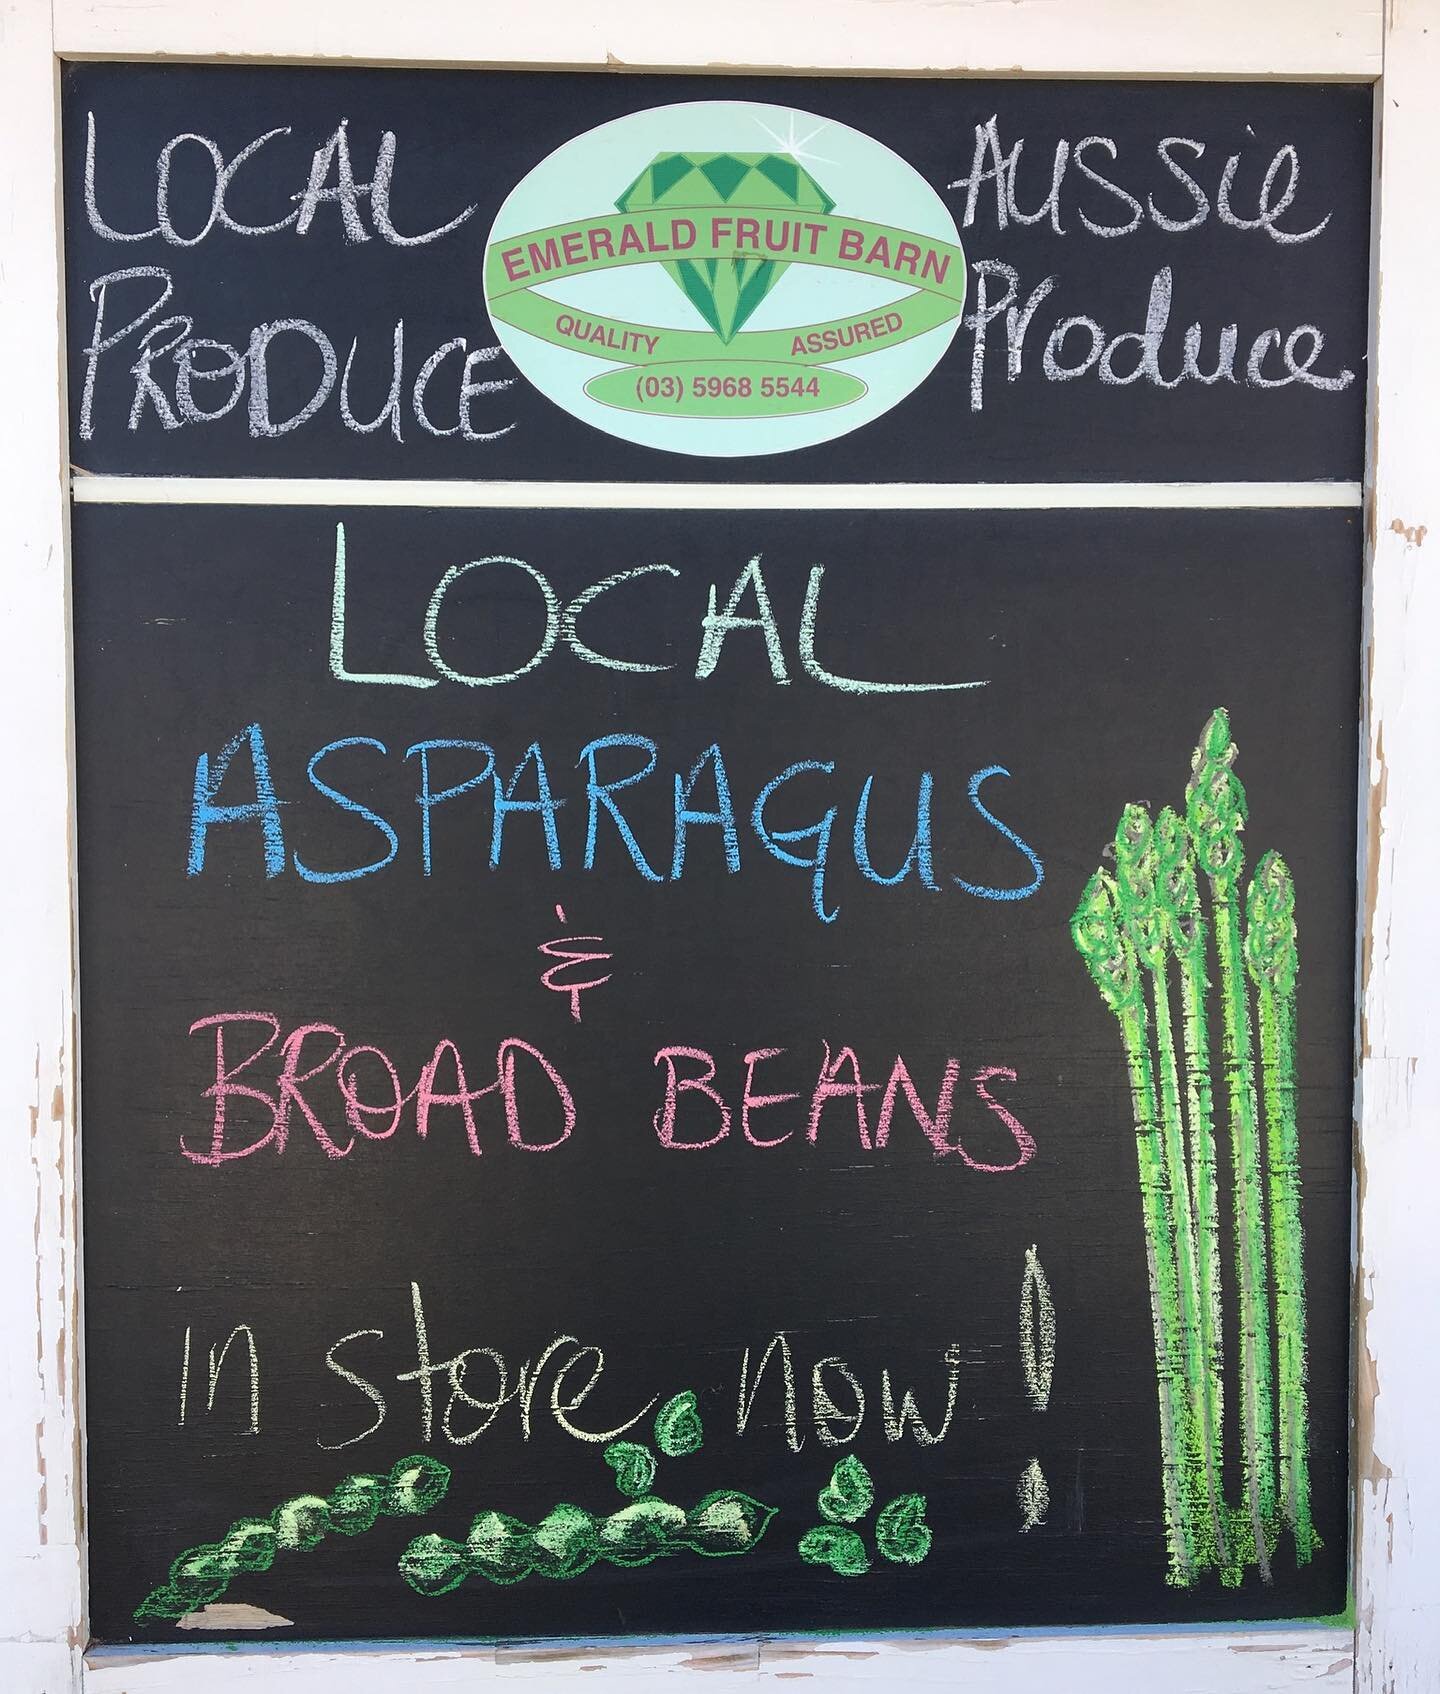 LOCAL
PRODUCE
EMERALD FRUIT BARN
QUALITY ASSURED
(03) 5968 5544
AUSSie
Produce
LOCAL
ASPARAGUS
&
BROAD BEANS
In store now!